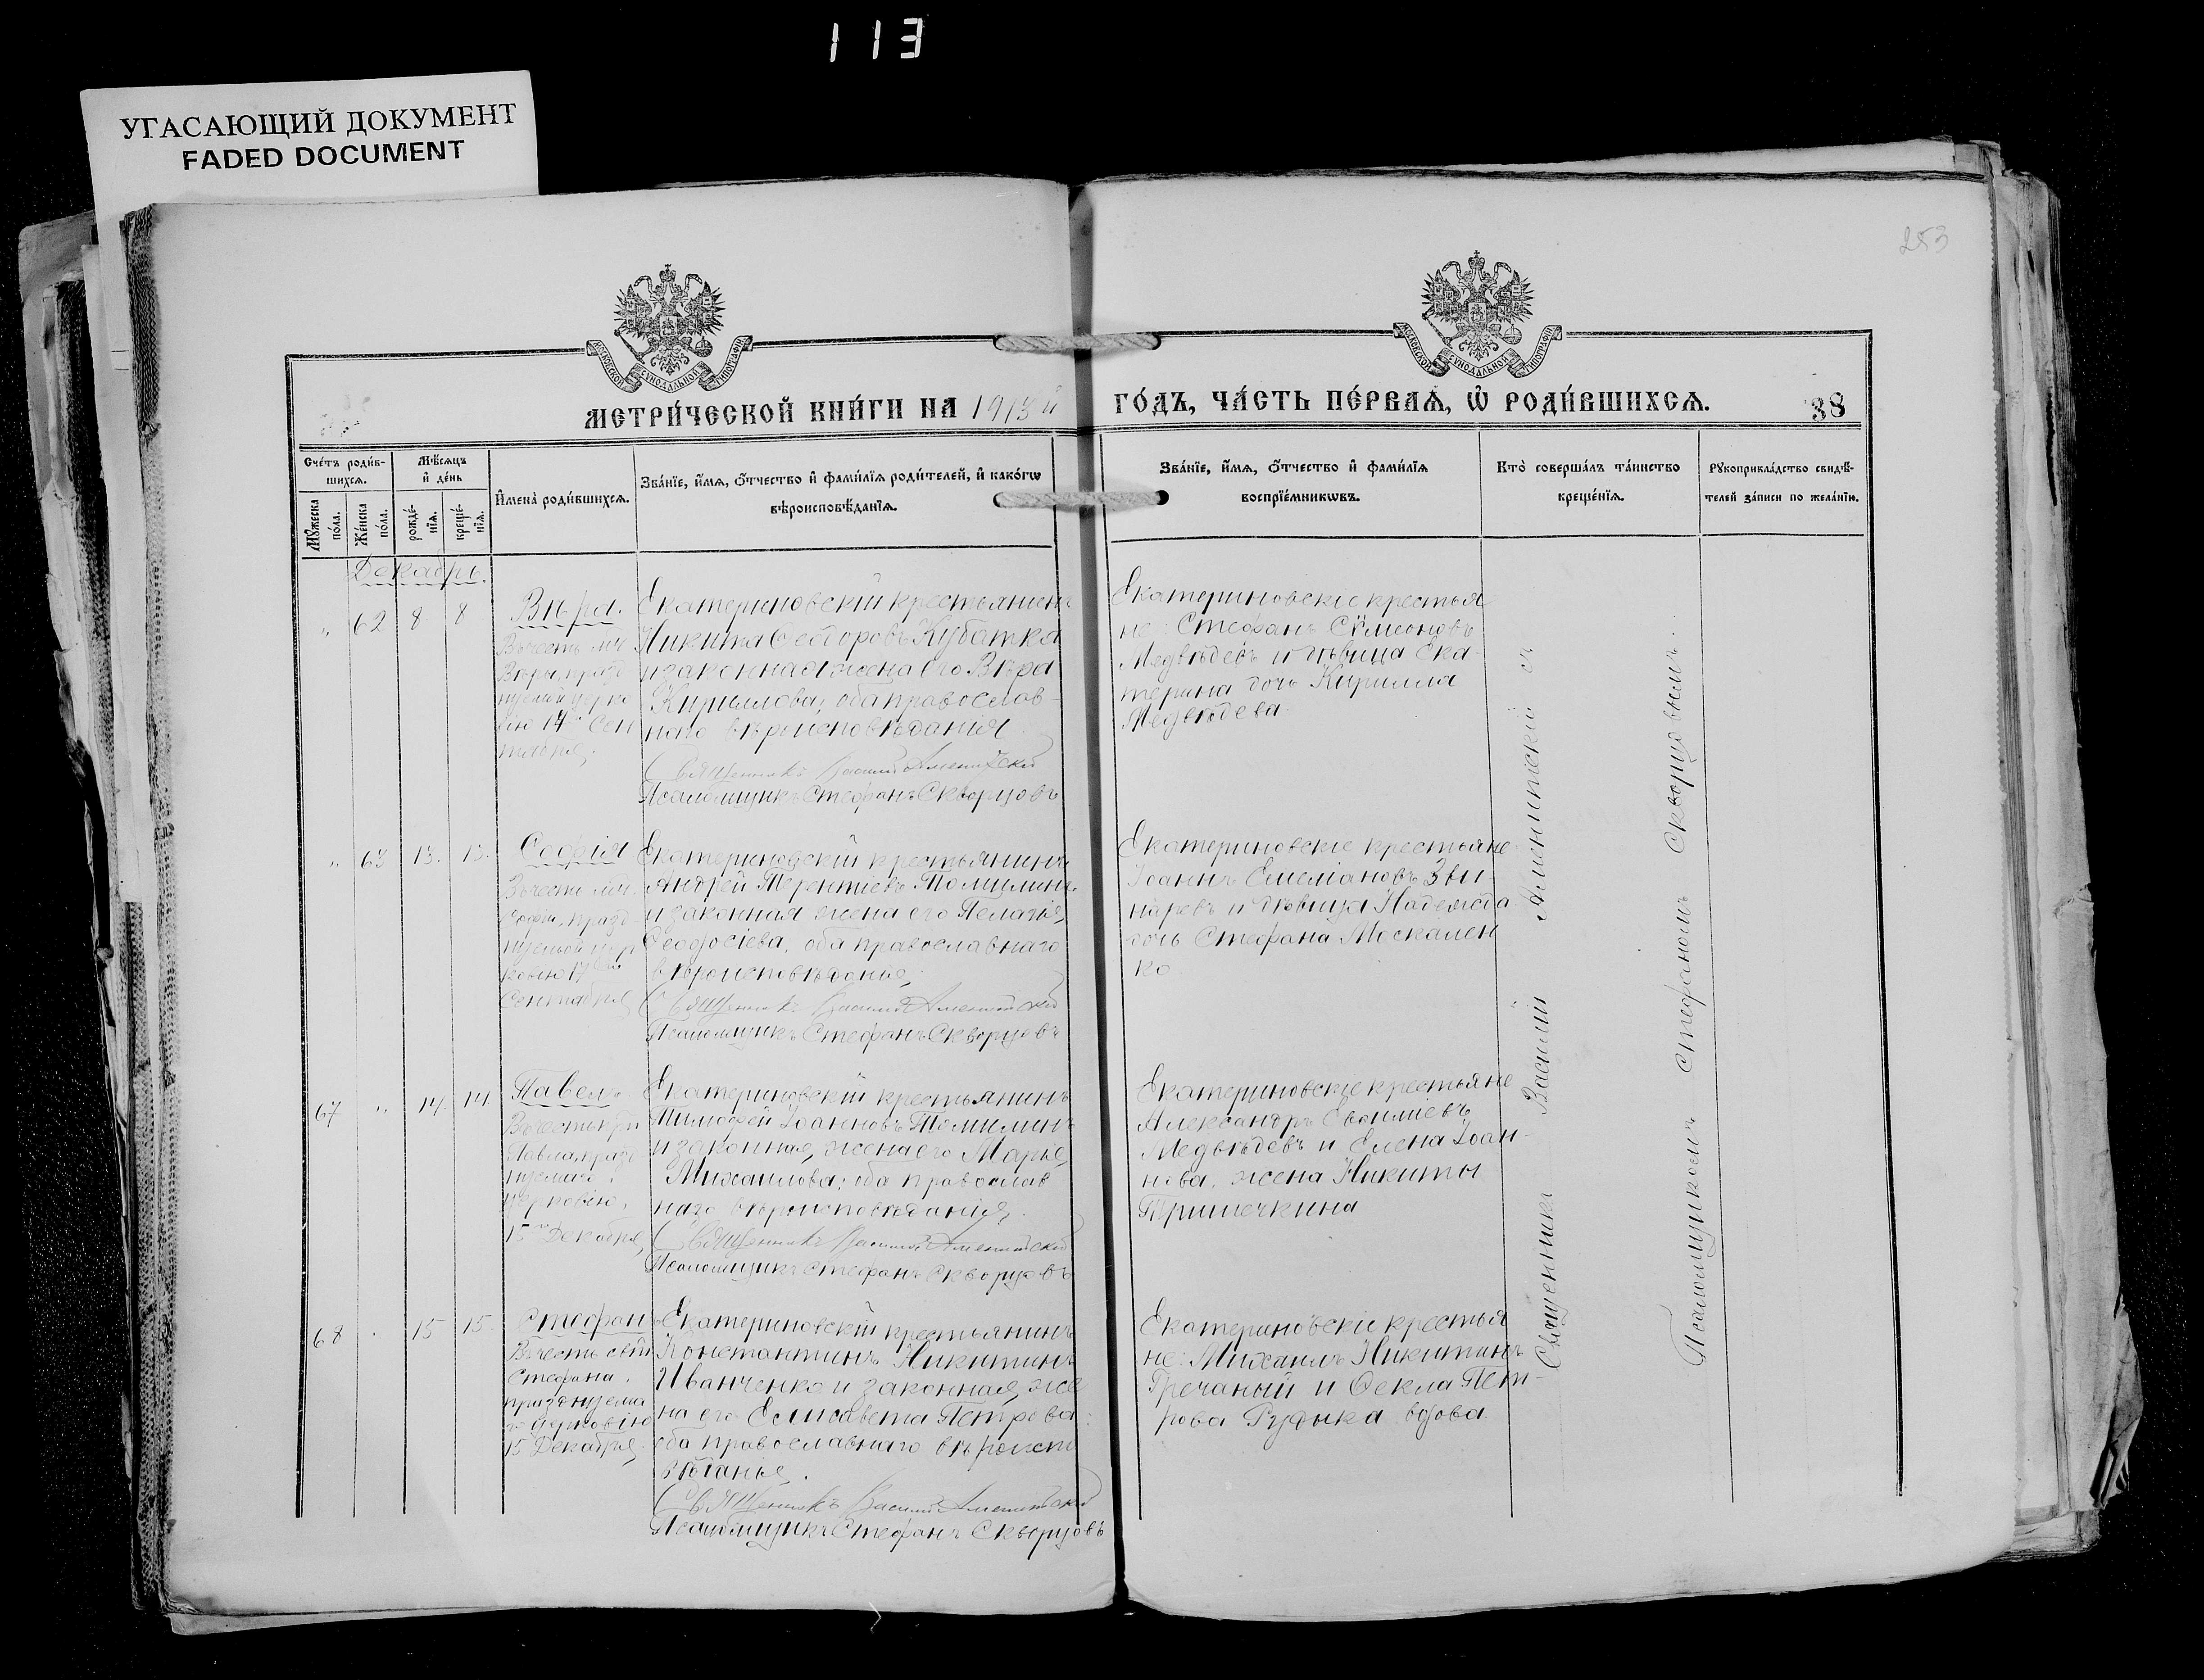 113
УГАСАЮЩИЙ ДОКУМЕНТ
FADED DOCUMENT
253
МОСКОВСКОЙ СУНОДАЛЬНОЙ ТИПОГРАФІИ
МОСКОВСКОЙ СУНОДАЛЬНОЙ ТИПОГРАФІИ
МЕТРИ́ЧЕСКОЙ КНИ́ГИ НА 1913й ГО́ДЪ, ЧА́СТЬ ПЕ́РВАѦ, Ѽ РОДИ́ВШИХСѦ.
38
Сче́тъ роди́в-
шихсѧ.
Мꙋжеска по́ла.
Же́нска по́ла.
Мѣ́сѧцъ
и҆ де́нь
рожде́-
нїѧ.
креще́-
нїѧ.
И҆мена̀ роди́вшихсѧ.
Зва́нїе, и҆́мѧ, ѻ҆́тчество и҆ фами́лїѧ роди́телей, и҆ како́гѡ
вѣроисповѣ́данїѧ.
Зва́нїе, и҆́мѧ, ѻ҆́тчество и҆ фами́лїѧ
воспрїе́мникѡвъ.
Кто̀ соверша́лъ та́инство
креще́нїѧ.
Рꙋкоприкла́дство свидѣ́-
телей за́писи по жела́нїю.
Декабрь.
" 62 8 8
Вѣра.
Въ честь мч.
Вѣры, празд
нуемой церко
вію 17го Сен
тября,
Екатериновскій крестьянинъ
Никита Ѳеодоровъ Кубатка
и законная жена его Вѣра
Кириллова, оба православ-
наго вѣроисповѣданія.
Священникъ Василій Аменитскій
Псаломщикъ Стефанъ Скворцовъ
Екатериновскіе крестья
не: Стефанъ Сѵмеоновъ
Медвѣдевъ и дѣвица Ека-
терина дочь Кирилла
Медвѣдева.
" 63 13. 13.
Софія
Въ честь мч.
Софіи, празд-
нуемой цер
ковію 17го
Сентября
Екатериновскій крестьянинъ
Андрей Терентіевъ Томилинъ
и законная жена его Пелагія
Ѳеодосіева, оба православнаго
вѣроисповѣданія,
Священникъ Василій Аменитскій
Псаломщикъ Стефанъ Скворцовъ
Екатериновскіе крестьяне
Іоаннъ Емеліановъ Зви-
наревъ и дѣвица Надежда
дочь Стефана Москален
ко
67 " 14. 14.
Павелъ
Въ честь
Павла, празд
нуемаго
церковію
15го Декабря,
Екатериновскій крестьянинъ
Тимофей Іоанновъ Томилинъ
и законная жена его Марія
Михаилова: оба православ
наго вѣроисповѣданія.
Священникъ Василій Аменитскій
Псаломщикъ Стефанъ Скворцовъ
Екатериновскіе крестьяне
Александръ
Медвѣдевъ и Елена Іоан-
нова, жена Никиты
Тришечкина
68 15 15.
Стефанъ
Въ честь свт
Стефана,
празднуема
го церковію
15 Декабря,
Екатериновскій крестьянинъ
Константинъ Никитинъ
Иванченко и законная же
на его Елисавета Петрова:
оба православнаго вѣроиспо
вѣданія.
Священникъ Василій Аменитскій
Псаломщикъ Стефанъ Скворцовъ
Екатериновскіе крестья
не: Михаилъ Никитинъ
Гречаный и Ѳекла Пет-
рова Рудыка вдова.
Священникъ Василій Аменитскій съ
Псаломщикомъ Стефаномъ Скворцовымъ.